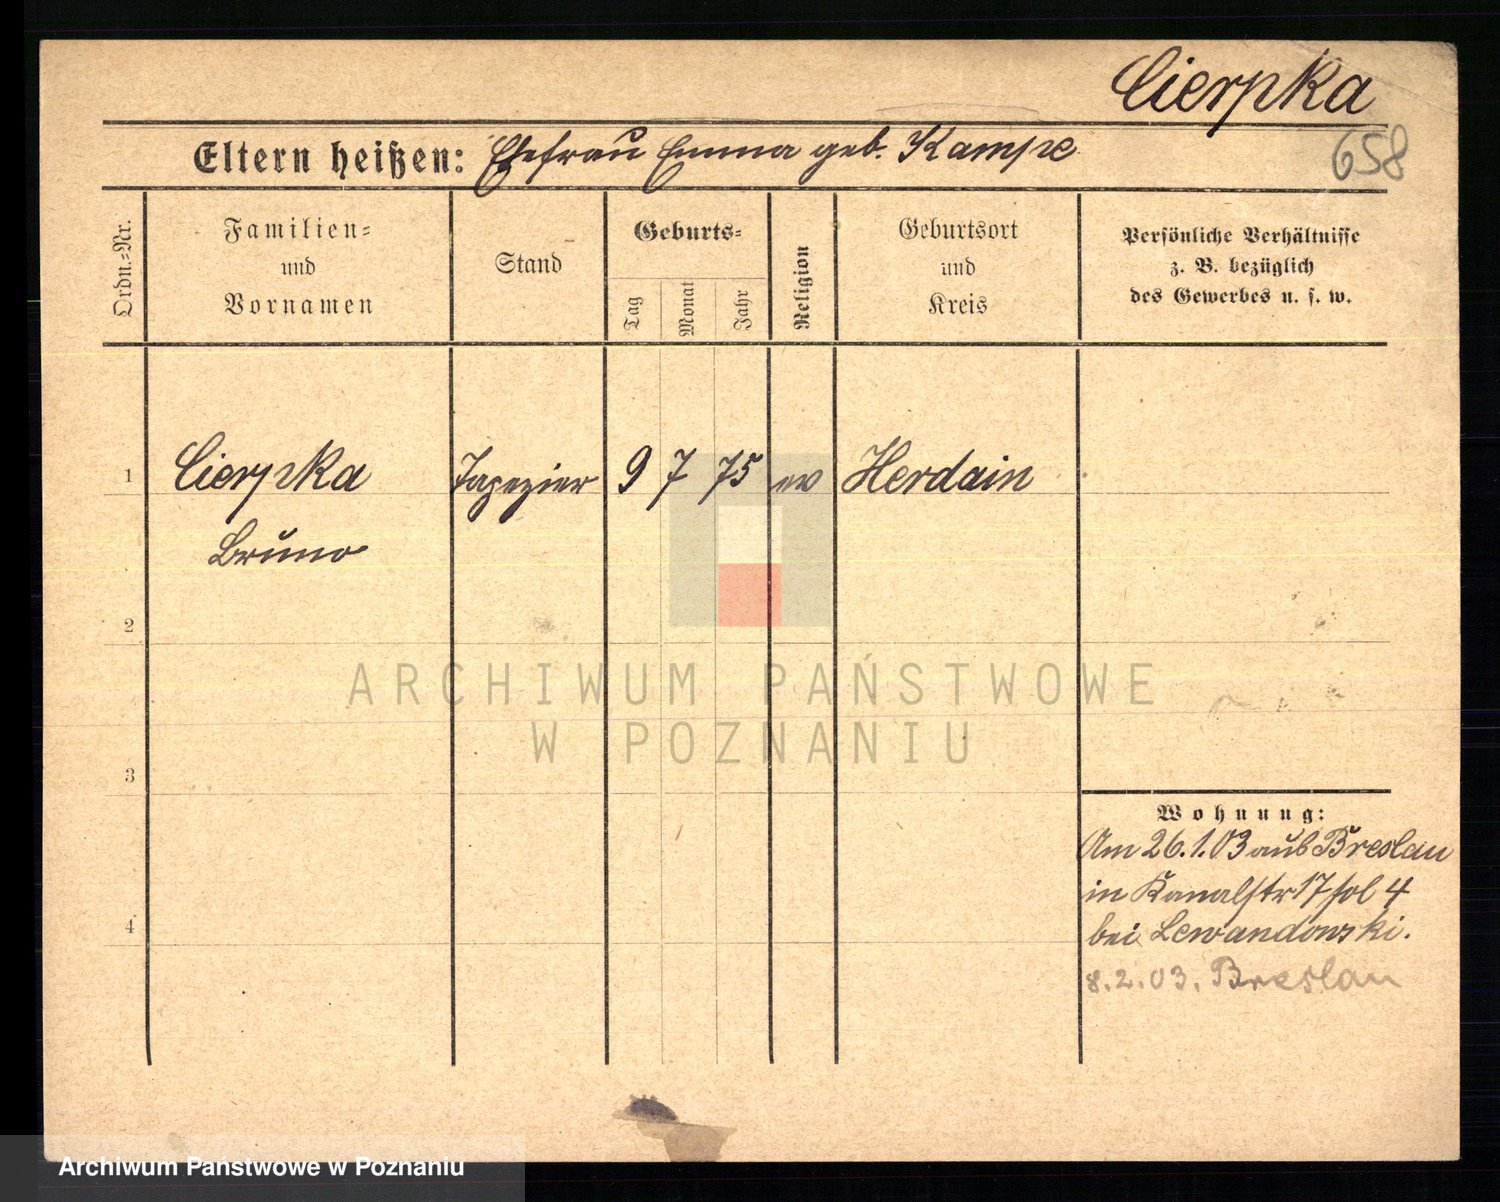 Cierpka
Eltern heißen: Ehefrau Emma geb. Kampe
658
Ordn.-Nr.
Familien-
und
Vornamen
Stand
Geburts-
Tag
Monat
Jahr
Religion
Geburtsort
und
Kreis
Persönliche Verhältnisse
z. B. bezüglich
des Gewerbes u. s. w.
1 Cierpka Tapezier 9 7 75 ev Herdain
Bruno
2
ARCHIWUM PAŃSTWOWE
W POZNANIU
3
Wohnung:
Am 26.1.03 aus Breslau
in Kanalstr 17 hol 4
4
bei Lewandowski.
8.2.03. Breslau
Archiwum Państwowe w Poznaniu